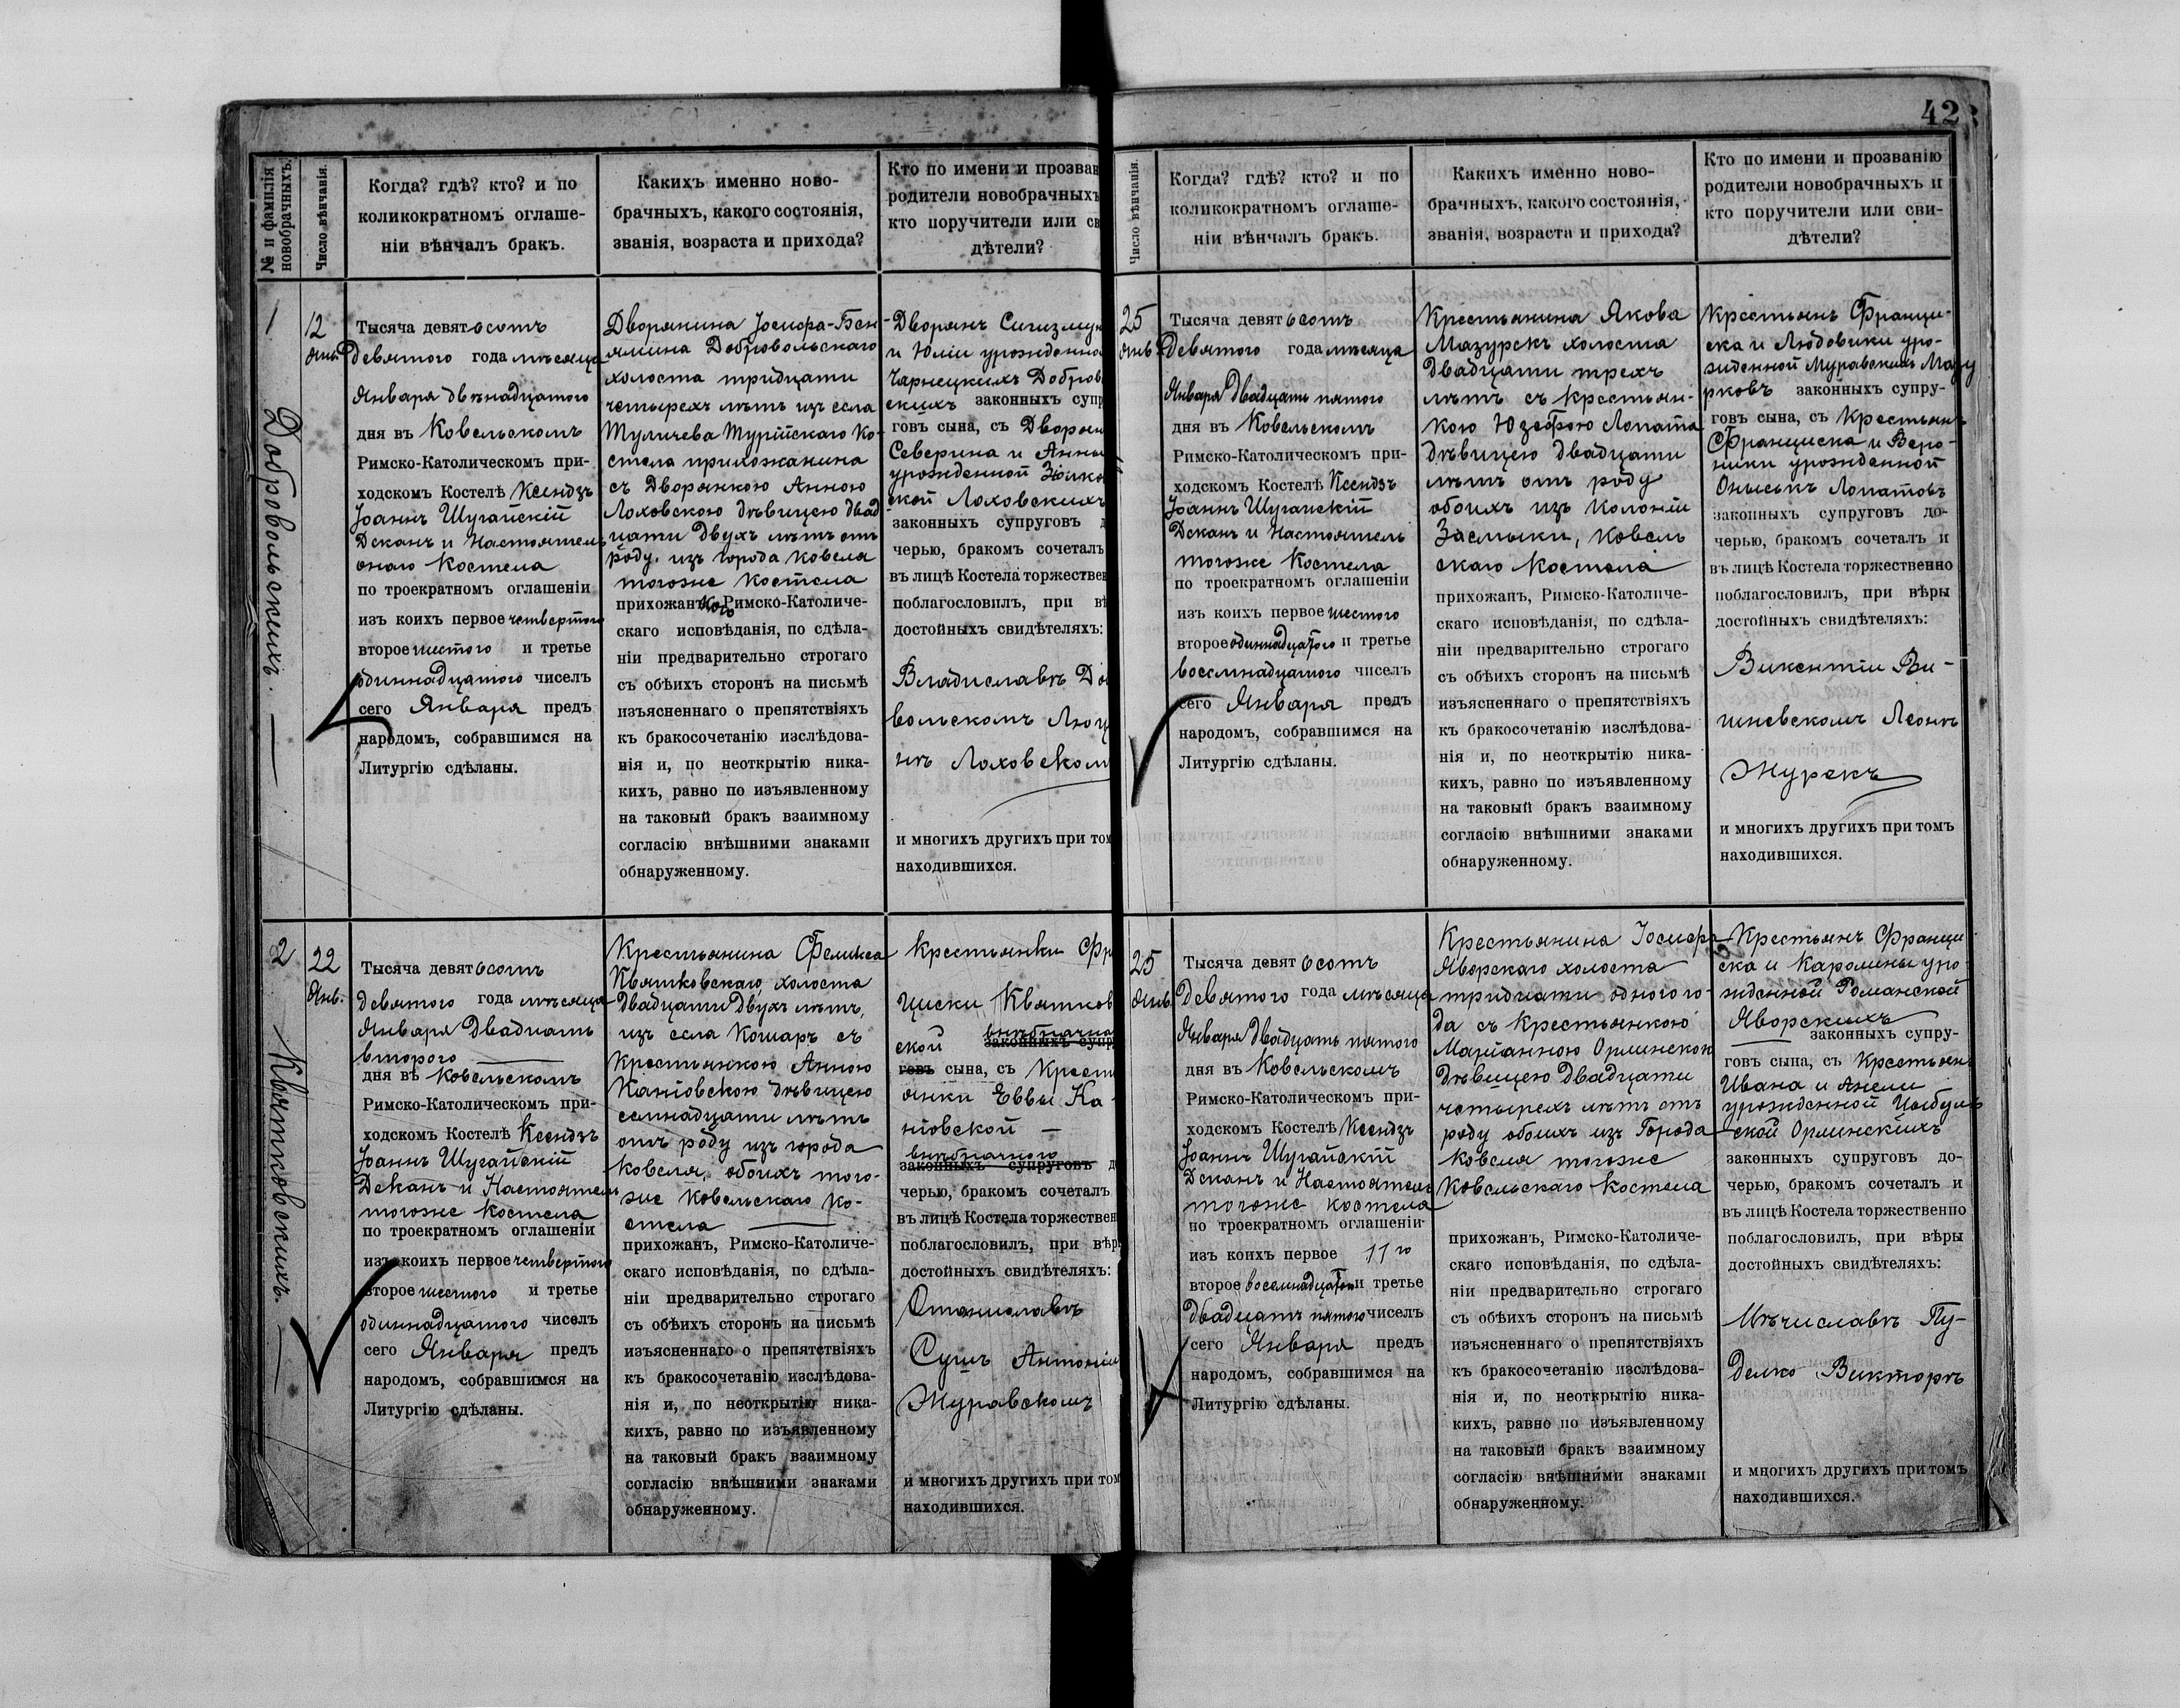 42
№ и фамилія
новобрачныхъ.
Число вѣнчанія.
Когда? гдѣ? кто? и по
коликократномъ оглаше-
ніи вѣнчалъ бракъ.
Какихъ именно ново-
брачныхъ, какого состоянія,
званія, возраста и прихода?
Кто по имени и прозван
родители новобрачныхъ
кто поручители или св
дѣтели?
1
Добровольскихъ.
12
Янв.
Тысяча девятьсотъ
девятого года мѣсяца
Января двѣнадцатого
дня въ Ковельскомъ
Римско-Католическомъ при-
ходскомъ Костелѣ Ксендзъ
Іоаннъ Шугайскій
Деканъ и Настоятель
оного Костела
по троекратномъ оглашеніи
изъ коихъ первое четвертого
второе шестого и третье
одиннадцатого чиселъ
сего Января предъ
народомъ, собравшимся на
Литургію сдѣланы.
Дворянина Іосифа-Бен-
ямина Добровольскаго
холоста тридцати
четырехъ лѣтъ изъ села
Туличева Турійскаго Ко-
стела прихожанина
съ Дворянкою Анною
Лоховскою дѣвицею двад
цати двухъ лѣтъ отъ
роду, изъ города Ковеля
тогоже Костела
прихожан Римско-Католиче-
скаго исповѣданія, по сдѣла-
ніи предварительно строгаго
съ обѣихъ сторонъ на письмѣ
изъясненнаго о препятствіяхъ
къ бракосочетанію изслѣдова-
нія и, по неоткрытію ника-
кихъ, равно по изъявленному
на таковый бракъ взаимному
согласію внѣшними знаками
обнаруженному.
Дворянъ Сигизмун
и Юліи урожденной
Чарнецкихъ Доброво
скихъ законныхъ супр
говъ сына, съ Дворян
Северина и Анны
урожденной
ской Лоховскихъ
законныхъ супруговъ д
черью, бракомъ сочеталъ
въ лицѣ Костела торжествен
поблагословилъ, при вѣ
достойныхъ свидѣтеляхъ:
Владиславѣ До
вольскомъ Люц
нѣ Лоховском
и многихъ другихъ при том
находившихся.
2
Квятковскихъ.
22
Янв.
Тысяча девятьсотъ
девятого года мѣсяца
Января двадцать
второго
дня въ Ковельскомъ
Римско-Католическомъ при-
ходскомъ Костелѣ Ксендзъ
Іоаннъ Шугайскій
Деканъ и Настоятель
тогоже Костела
по троекратномъ оглашеніи
изъ коихъ первое четвертого
второе шестого и третье
одиннадцатого чиселъ
сего Января предъ
народомъ, собравшимся на
Литургію сдѣланы.
Крестьянина Феликса
Квятковскаго, холоста
двадцати двухъ лѣтъ,
изъ села Кошаръ съ
Крестьянкою Анною
Канювскою дѣвицею
семнадцати лѣтъ
отъ роду изъ города
Ковеля, обоихъ того-
же Ковельскаго Ко-
стела
прихожанъ, Римско-Католиче-
скаго исповѣданія, по сдѣла-
ніи предварительно строгаго
съ обѣихъ сторонъ на письмѣ
изъясненнаго о препятствіяхъ
къ бракосочетанію изслѣдова-
нія и, по неоткрытію ника-
кихъ, равно по изъявленному
на таковый бракъ взаимному
согласію внѣшними знаками
обнаруженному.
Крестьянки Фр
циски Квятков
внѣбрачна
ской законныхъ супр
говъ сына, съ Крест
янки Еввы Ка-
нювской
внѣбрачного
законныхъ супруговъ д
черью, бракомъ сочеталъ
въ лицѣ Костела торжествен
поблагословилъ, при вѣр
достойныхъ свидѣтеляхъ:
Станиславѣ
Сушъ Антоніи
Журавскомъ
и многихъ другихъ при том
находившихся.
Число вѣнчанія.
Когда? гдѣ? кто? и по
коликократномъ оглаше-
ніи вѣнчалъ бракъ.
Какихъ именно ново-
брачныхъ, какого состоянія,
званія, возраста и прихода?
Кто по имени и прозванію
родители новобрачныхъ и
кто поручители или сви-
дѣтели?
25
Янв.
Тысяча девятьсотъ
девятого года мѣсяца
Января двадцать пятого
дня въ Ковельскомъ
Римско-Католическомъ при-
ходскомъ Костелѣ Ксендзъ
Іоаннъ Шугайскій
Деканъ и Настоятель
тогоже Костела
по троекратномъ оглашеніи
изъ коихъ первое шестого
второе одиннадцатого и третье
восемнадцатого чиселъ
сего Января предъ
народомъ, собравшимся на
Литургію сдѣланы.
Крестьянина Якова
Мазурекъ холоста
двадцати трехъ
лѣтъ съ крестьян-
кою Юзефою Лопата
дѣвицею двадцати
лѣтъ отъ роду
обоихъ изъ Колоніи
Засмыки, Ковель
скаго Костела
прихожан, Римско-Католиче-
скаго исповѣданія, по сдѣла-
ніи предварительно строгаго
съ обѣихъ сторонъ на письмѣ
изъясненнаго о препятствіяхъ
къ бракосочетанію изслѣдова-
нія и, по неоткрытію ника-
кихъ, равно по изъявленному
на таковый бракъ взаимному
согласію внѣшними знаками
обнаруженному.
Крестьянъ Францис-
ска и Людовики уро-
жденной Муравскихъ Мазу
рковъ законныхъ супру-
говъ сына, съ Крестьянъ
Франциска и Веро-
ники урожденной
Оныськъ Лопатовъ
законныхъ супруговъ до-
черью, бракомъ сочеталъ и
въ лицѣ Костела торжественно
поблагословилъ, при вѣры
достойныхъ свидѣтеляхъ:
Викентіи Ви-
шневскомъ Леонѣ
Журекъ
и многихъ другихъ при томъ
находившихся.
25
Янв.
Тысяча девятьсотъ
девятого года мѣсяца
Января двадцать пятого
дня въ Ковельскомъ
Римско-Католическомъ при-
ходскомъ Костелѣ Ксендзъ
Іоаннъ Шугайскій
Деканъ и Настоятель
тогоже костела
по троекратномъ оглашеніи
изъ коихъ первое 11 го
второе восемнадцатого и третье
двадцать пятого чиселъ
сего Января предъ
народомъ, собравшимся на
Литургію сдѣланы.
Крестьянина Іосифа
Яворскаго холоста
тридцати одного го-
да съ Крестьянкою
Маріанною Орлинскою
дѣвицею двадцати
четырехъ лѣтъ отъ
роду обоихъ изъ Города
Ковеля тогоже
Ковельскаго Костела
прихожанъ, Римско-Католиче-
скаго исповѣданія, по сдѣла-
ніи предварительно строгаго
съ обѣихъ сторонъ на письмѣ
изъясненнаго о препятствіяхъ
къ бракосочетанію изслѣдова-
нія и, по неоткрытію ника-
кихъ, равно по изъявленному
на таковый бракъ взаимному
согласію внѣшними знаками
обнаруженному.
Крестьянъ Франци
ска и Каролины уро-
жденной Романской
Яворскихъ
законныхъ супру-
говъ сына, съ Крестьян
Ивана и Анели
урожденной Цыбуль
ской Орлинскихъ
законныхъ супруговъ до-
черью, бракомъ сочеталъ и
въ лицѣ Костела торжественно
поблагословилъ, при вѣры
достойныхъ свидѣтеляхъ:
Мѣчиславѣ Пу-
делко Викторѣ
и многихъ другихъ при томъ
находившихся.